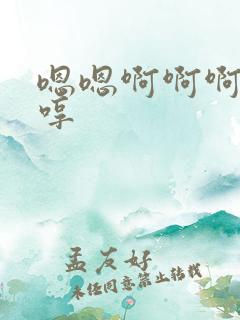 嗯嗯啊啊啊
哼
孟友好
未经同意禁止转载